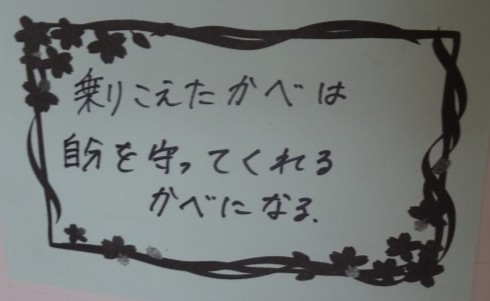 乗りこえたかべは
自分を守ってくれる
かべになる.